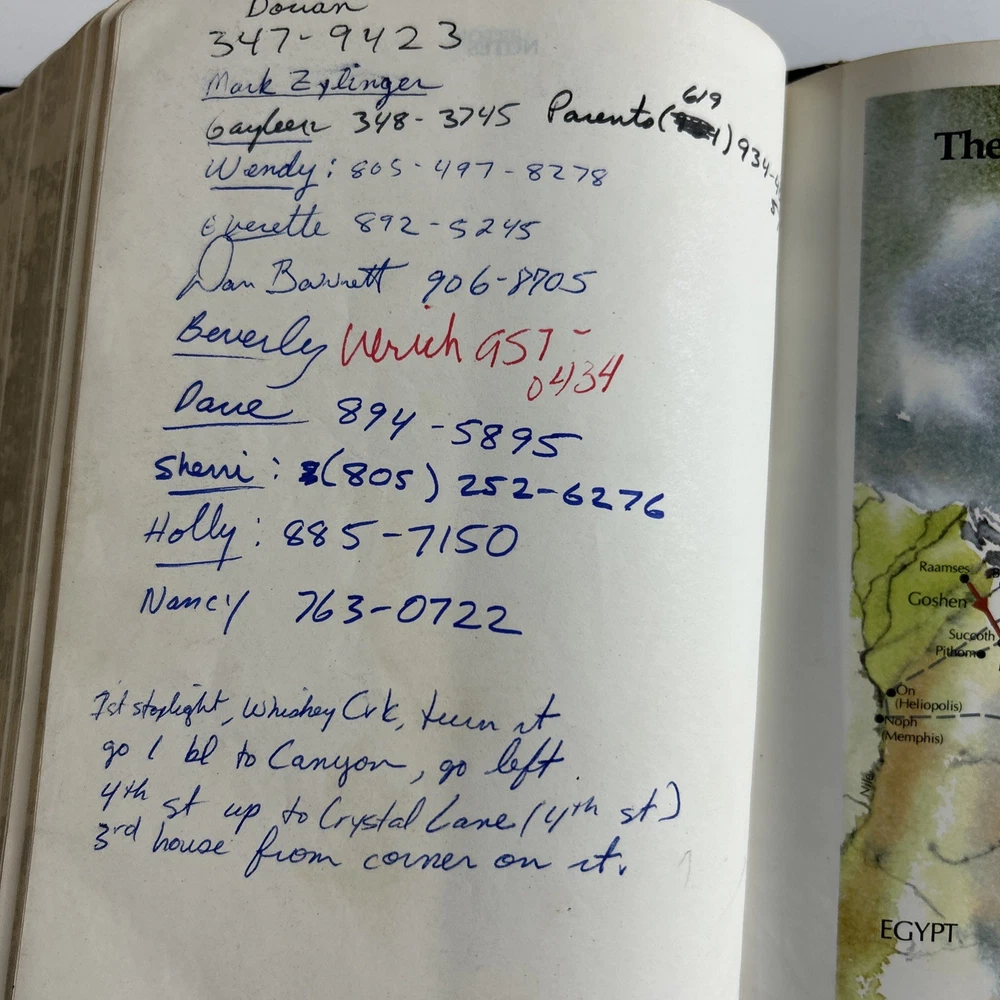 Dorian
347-9423
Mark Zylinger
Gayleen 348-3745 Parents (619) 934-
Wendy: 805-497-8278
Everette 892-5245
Dan Barnett 906-8705
Beverly Ulrich 957-
0434
Dave 894-5895
Sherri: (805) 252-6276
Holly: 885-7150
Nancy 763-0722
1st stoplight, Whiskey Crk, turn rt
go 1 bl to Canyon, go left.
4th st up to Crystal Lane (4th st)
3rd house from corner on rt.
The
Raamses
Goshen
Succoth
Pithom
On
(Heliopolis)
Noph
(Memphis)
Nile
EGYPT